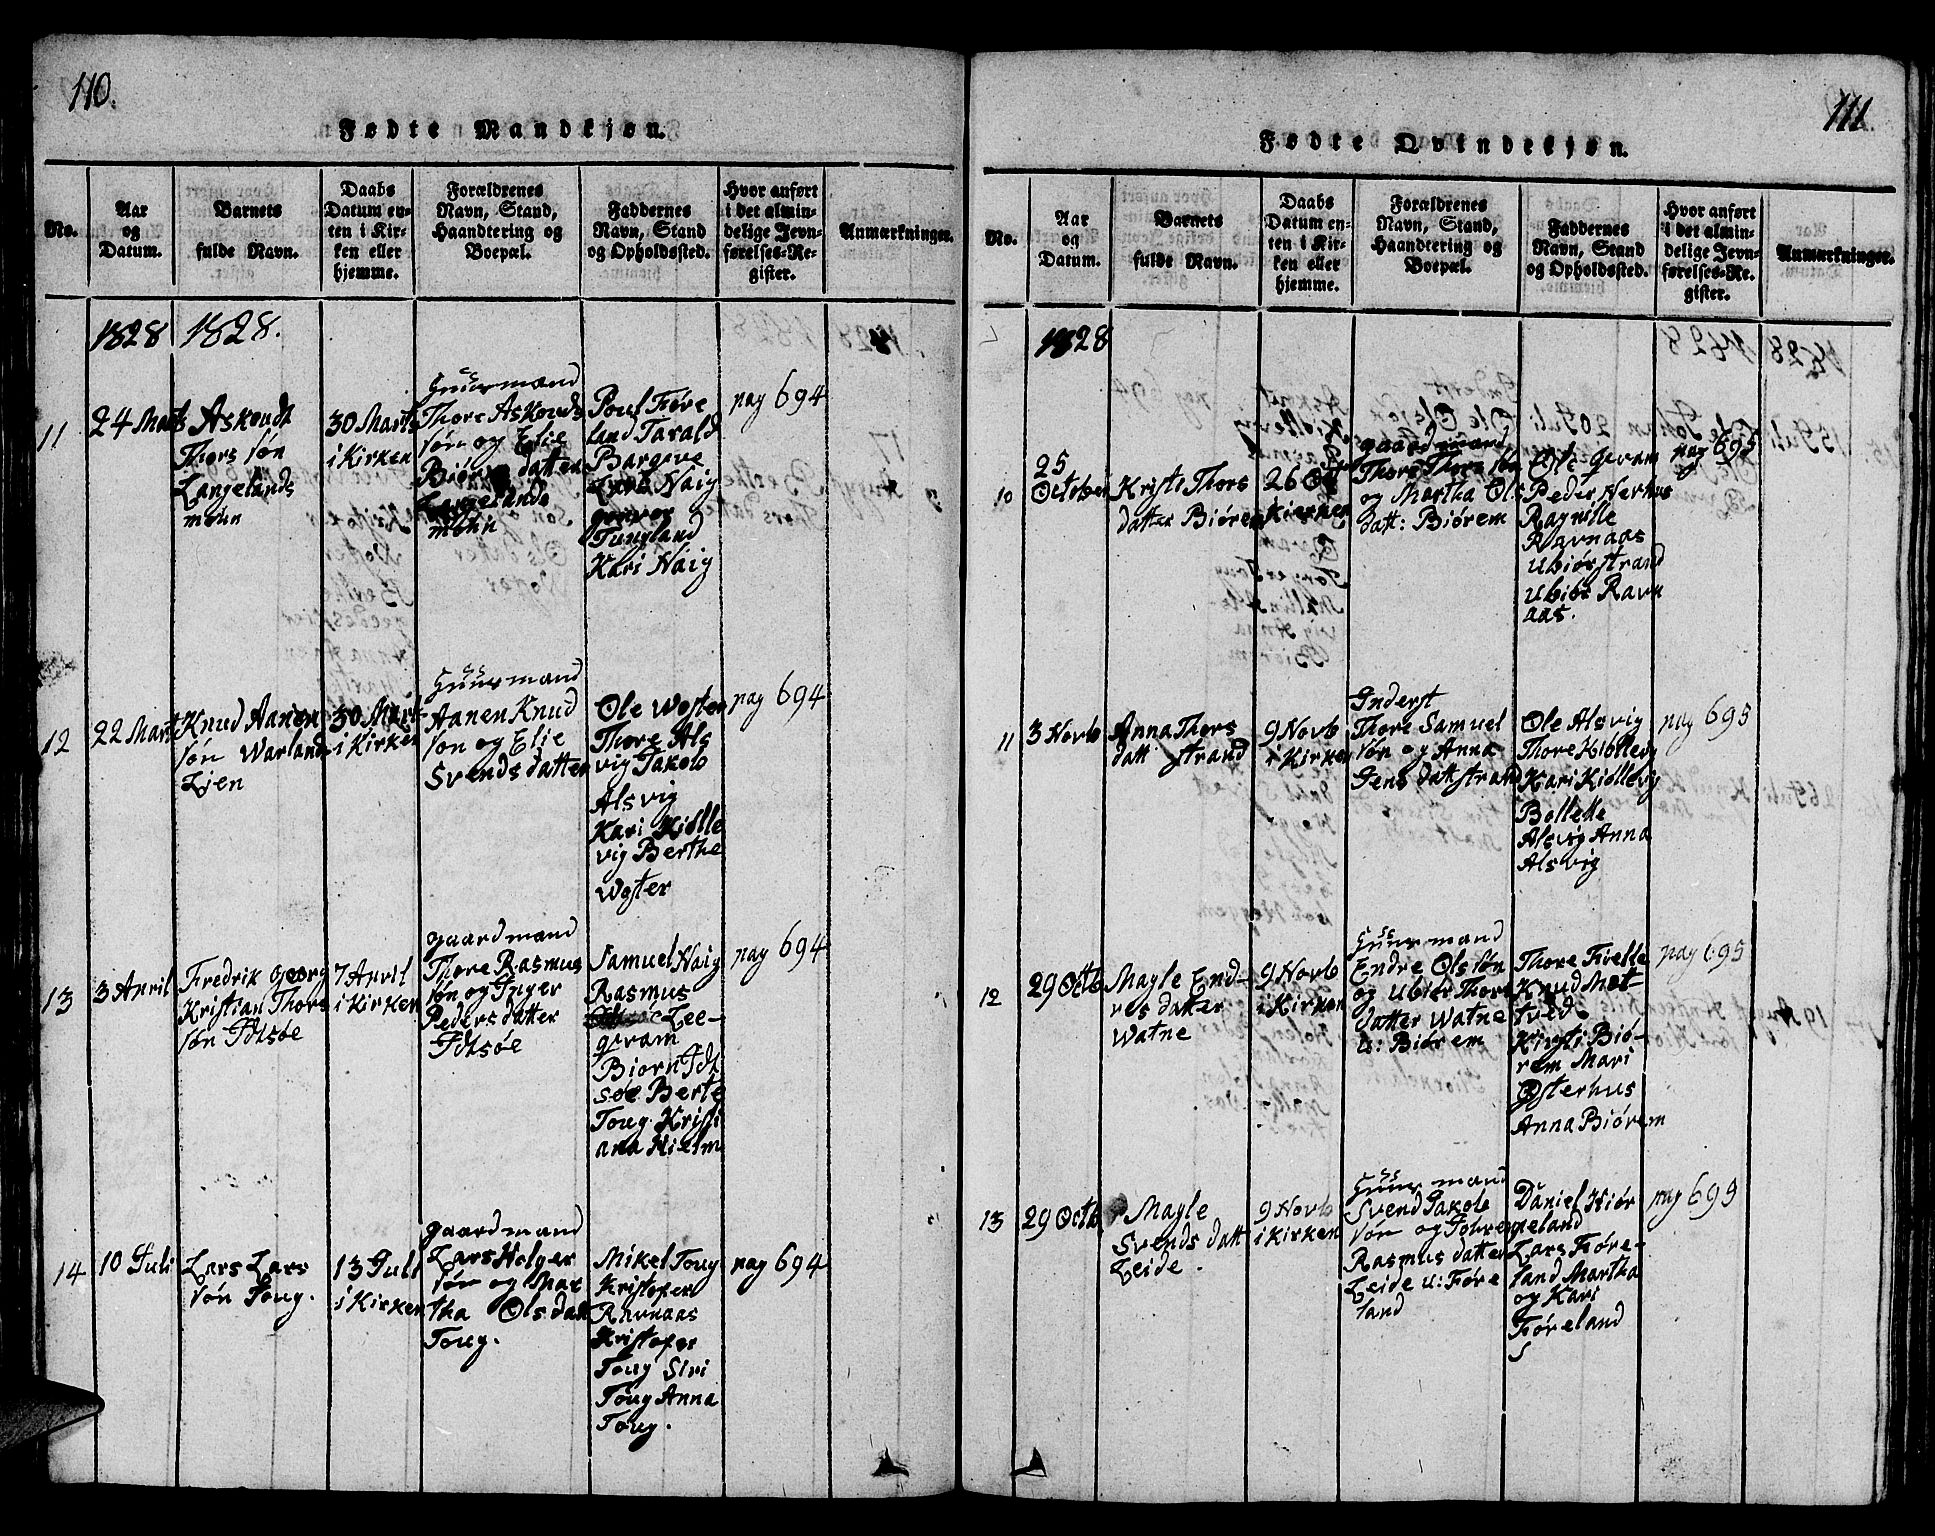 110.
Fødte Mandkjøn.
No.
Aar
og
Datum.
Barnets
fulde Navn.
Daabs
Datum en-
ten i Kir-
ken eller
hjemme.
Forældrenes
Navn, Stand,
Haandtering og
Boepæl.
Faddernes
Navn, Stand
og Opholdssted.
Hvor anført
i det almin-
delige Jevn-
førelses-Re-
gister.
Anmærkninger.
1828
1828.
11
24 Marts
Askoudt
Thors søn
Langelands
mohn
30 Marts
i Kirken
Huusmand
Thore Askouds
søn og Elie
Biørns datter
Langelands
mohn
Poul Føre
land Tarald
Bargeve
Lars Haig
Tungland
Kari Haig
pag 694
12
22 Mart
Knud Aanen
søn Warland
Lien
30 Mart
i Kirken
Huusmand
Aanen Knud
son og Elie
Svends datter
Ole Woster
Thore Als
vig Jakob
Alsvig
Kari Kiølle
vig Berthe
Woster
pag 694
13
3 April
Fredrik georg
Kristian Thors
søn Idsøe
7 April
i Kirken
gaardmand
Thore Rasmus
søn og Inger
Peders datter
Idsøe
Samuel Haig
Rasmus
Lee-
gvam
Biorn Idt
søe Berte
Toug Kristi
ana Hielm
pag 694
14
10 Juli
Lars Lars
søn Toug.
13 Juli
i Kirken
gaardmand
Lars Holger
søn og Mar
tha Ols dat
Toug.
Mikel Toug
Kristofer
Ravnaas
Kristofer
Toug Siri
Toug Anna
Toug.
pag 694
111.
Fødte Qvindekjøn.
No.
Aar
og
Datum.
Barnets
fulde Navn.
Daabs
Datum en-
ten i Kir-
ken eller
hjemme.
Forældrenes
Navn, Stand,
Haandtering og
Boepæl.
Faddernes
Navn, Stand
og Opholdssted.
Hvor anført
i det almin-
delige Jevn-
førelses-Re-
gister.
Anmærkninger.
1828
10
25
October
Kristi Thors
datter Biørem
26 Oct
Kierken
gaardmand
Thore Thors søn
og Martha Ols
datt: Biørem
Ole Qvam
Peder Nerhus
Ragnille
Ravnaas
Ubiør strand
Ubiør Ravn
aas.
pag 695
11
3 Novb
Anna Thors
datt strand
9 Novb
i Kirken
Inderst
Thore Samuel
søn og Anna
Jens datt strand
Ole Alsvig
Thore Kiøllevig
Kari Kiøllevig
Bollette
Alsvig Anna
Alsvig
pag 695
12
29 Octb
Magle End-
res datter
Watne
9 Novb
i Kirken
Huusmand
Endre Ols søn
og Ubiør Thors
datter Watne
u: Biørem
Thore Fielle
Knud Met-
tved
Kirsti Biø-
rem Mari
Østerhus
Anna Biørem
pag 695
13
29 Octb
Magle
Svends datt
Leide.
9 Novb
i Kirken
Huusmand
Svend Jakob
søn og
Rasmus datter
Leide u: Føre
land
Daniel Hiør
peland
Lars Føre-
land Martha
og Kari
Føreland
pag 699